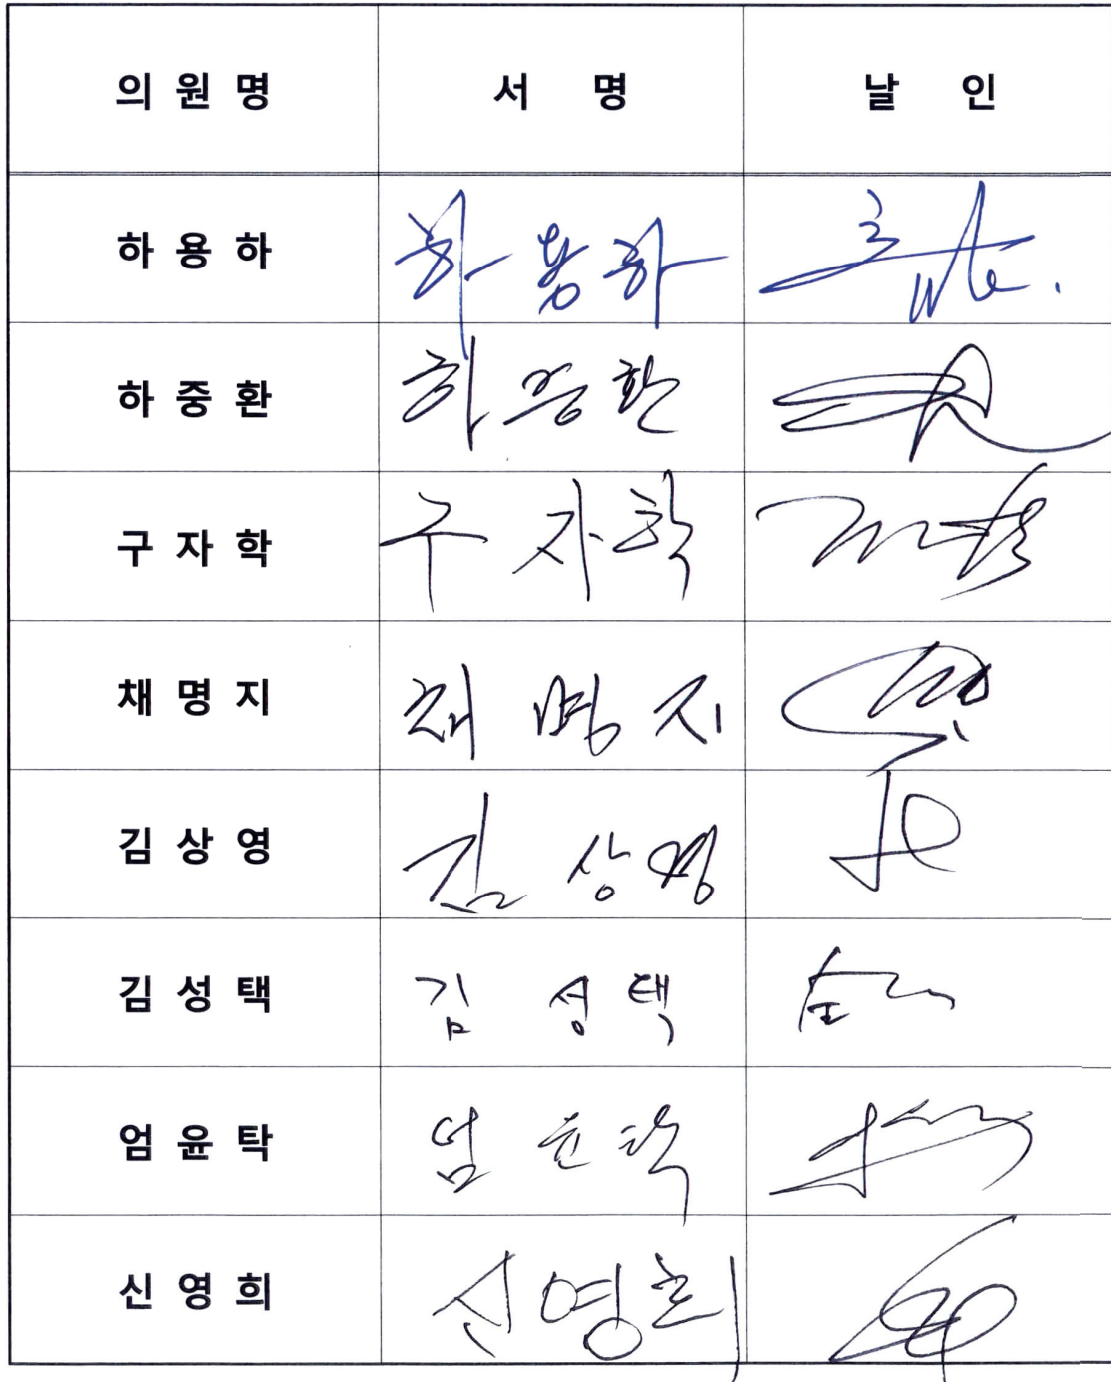 의원명 서 명 날 인
하용하 하용하
하중환 하중환
구자학 구자학
채명지 채명지
김상영 김상영
김성택 김성택
엄윤탁 엄윤탁
신영희 신영희